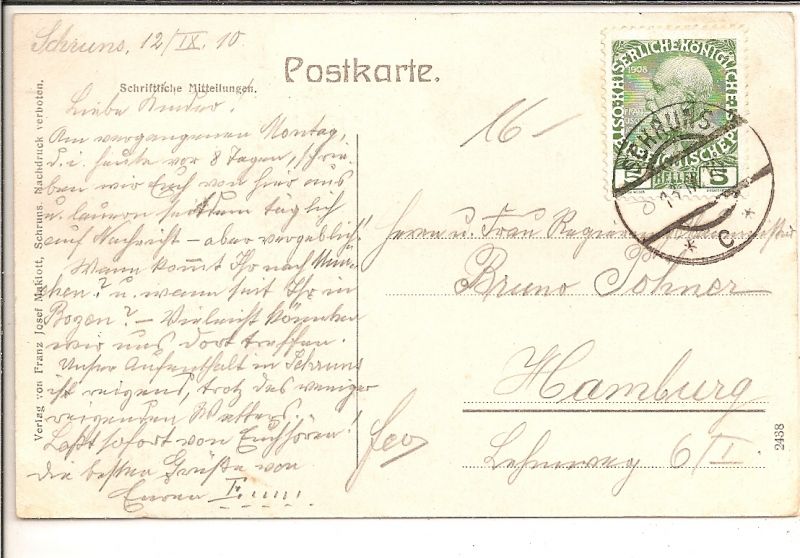 Schruns, 12/IX. 10.
Postkarte.
Schriftliche Mitteilungen.
Liebe Kinder!
Am vergangenen Montag,
d.i. heute vor 8 Tagen, schrie-
ben wir Euch von hier aus
u. lauern seitdem täglich
auf Nachricht – aber vergeblich!
Wann kommt Ihr nach Mün-
chen? u. wann seit Ihr in
Bozen? – Vielleicht könnten
wir uns dort treffen.
Unser Aufenthalt in Schruns
ist reizend, trotz des weniger
reizenden Wetters...
Laßt sofort von Euch hören!
Die besten Grüße von
Euren
Verlag von Franz Josef Maklott, Schruns. Nachdruck verboten.
16-
1908
KAISERLICHE KÖNIGLICHE
ÖSTERREICHISCHE POST
HELLER 5
SCHRUNS
* C *
Herrn u. Frau
Bruno Johner
Hamburg
Lehmweg 6/I.
2438